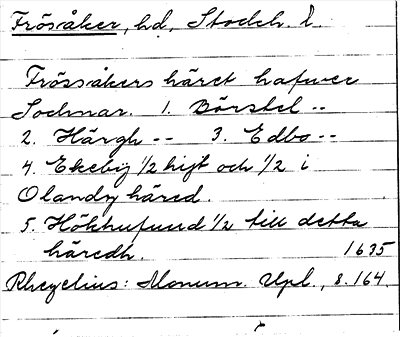 Frösåker, hd, Stockh l.
Frössåkers häret hafwer
Sochnar. 1. Börstel --
2. Härgh -- 3. Edbo --
4. Ekebij 1/2 hijt och 1/2 i
Olandz häred.
5. Hökhufuud 1/2 till detta
häredh. 1635
Rhezelius: Monum. Upl., s. 164.